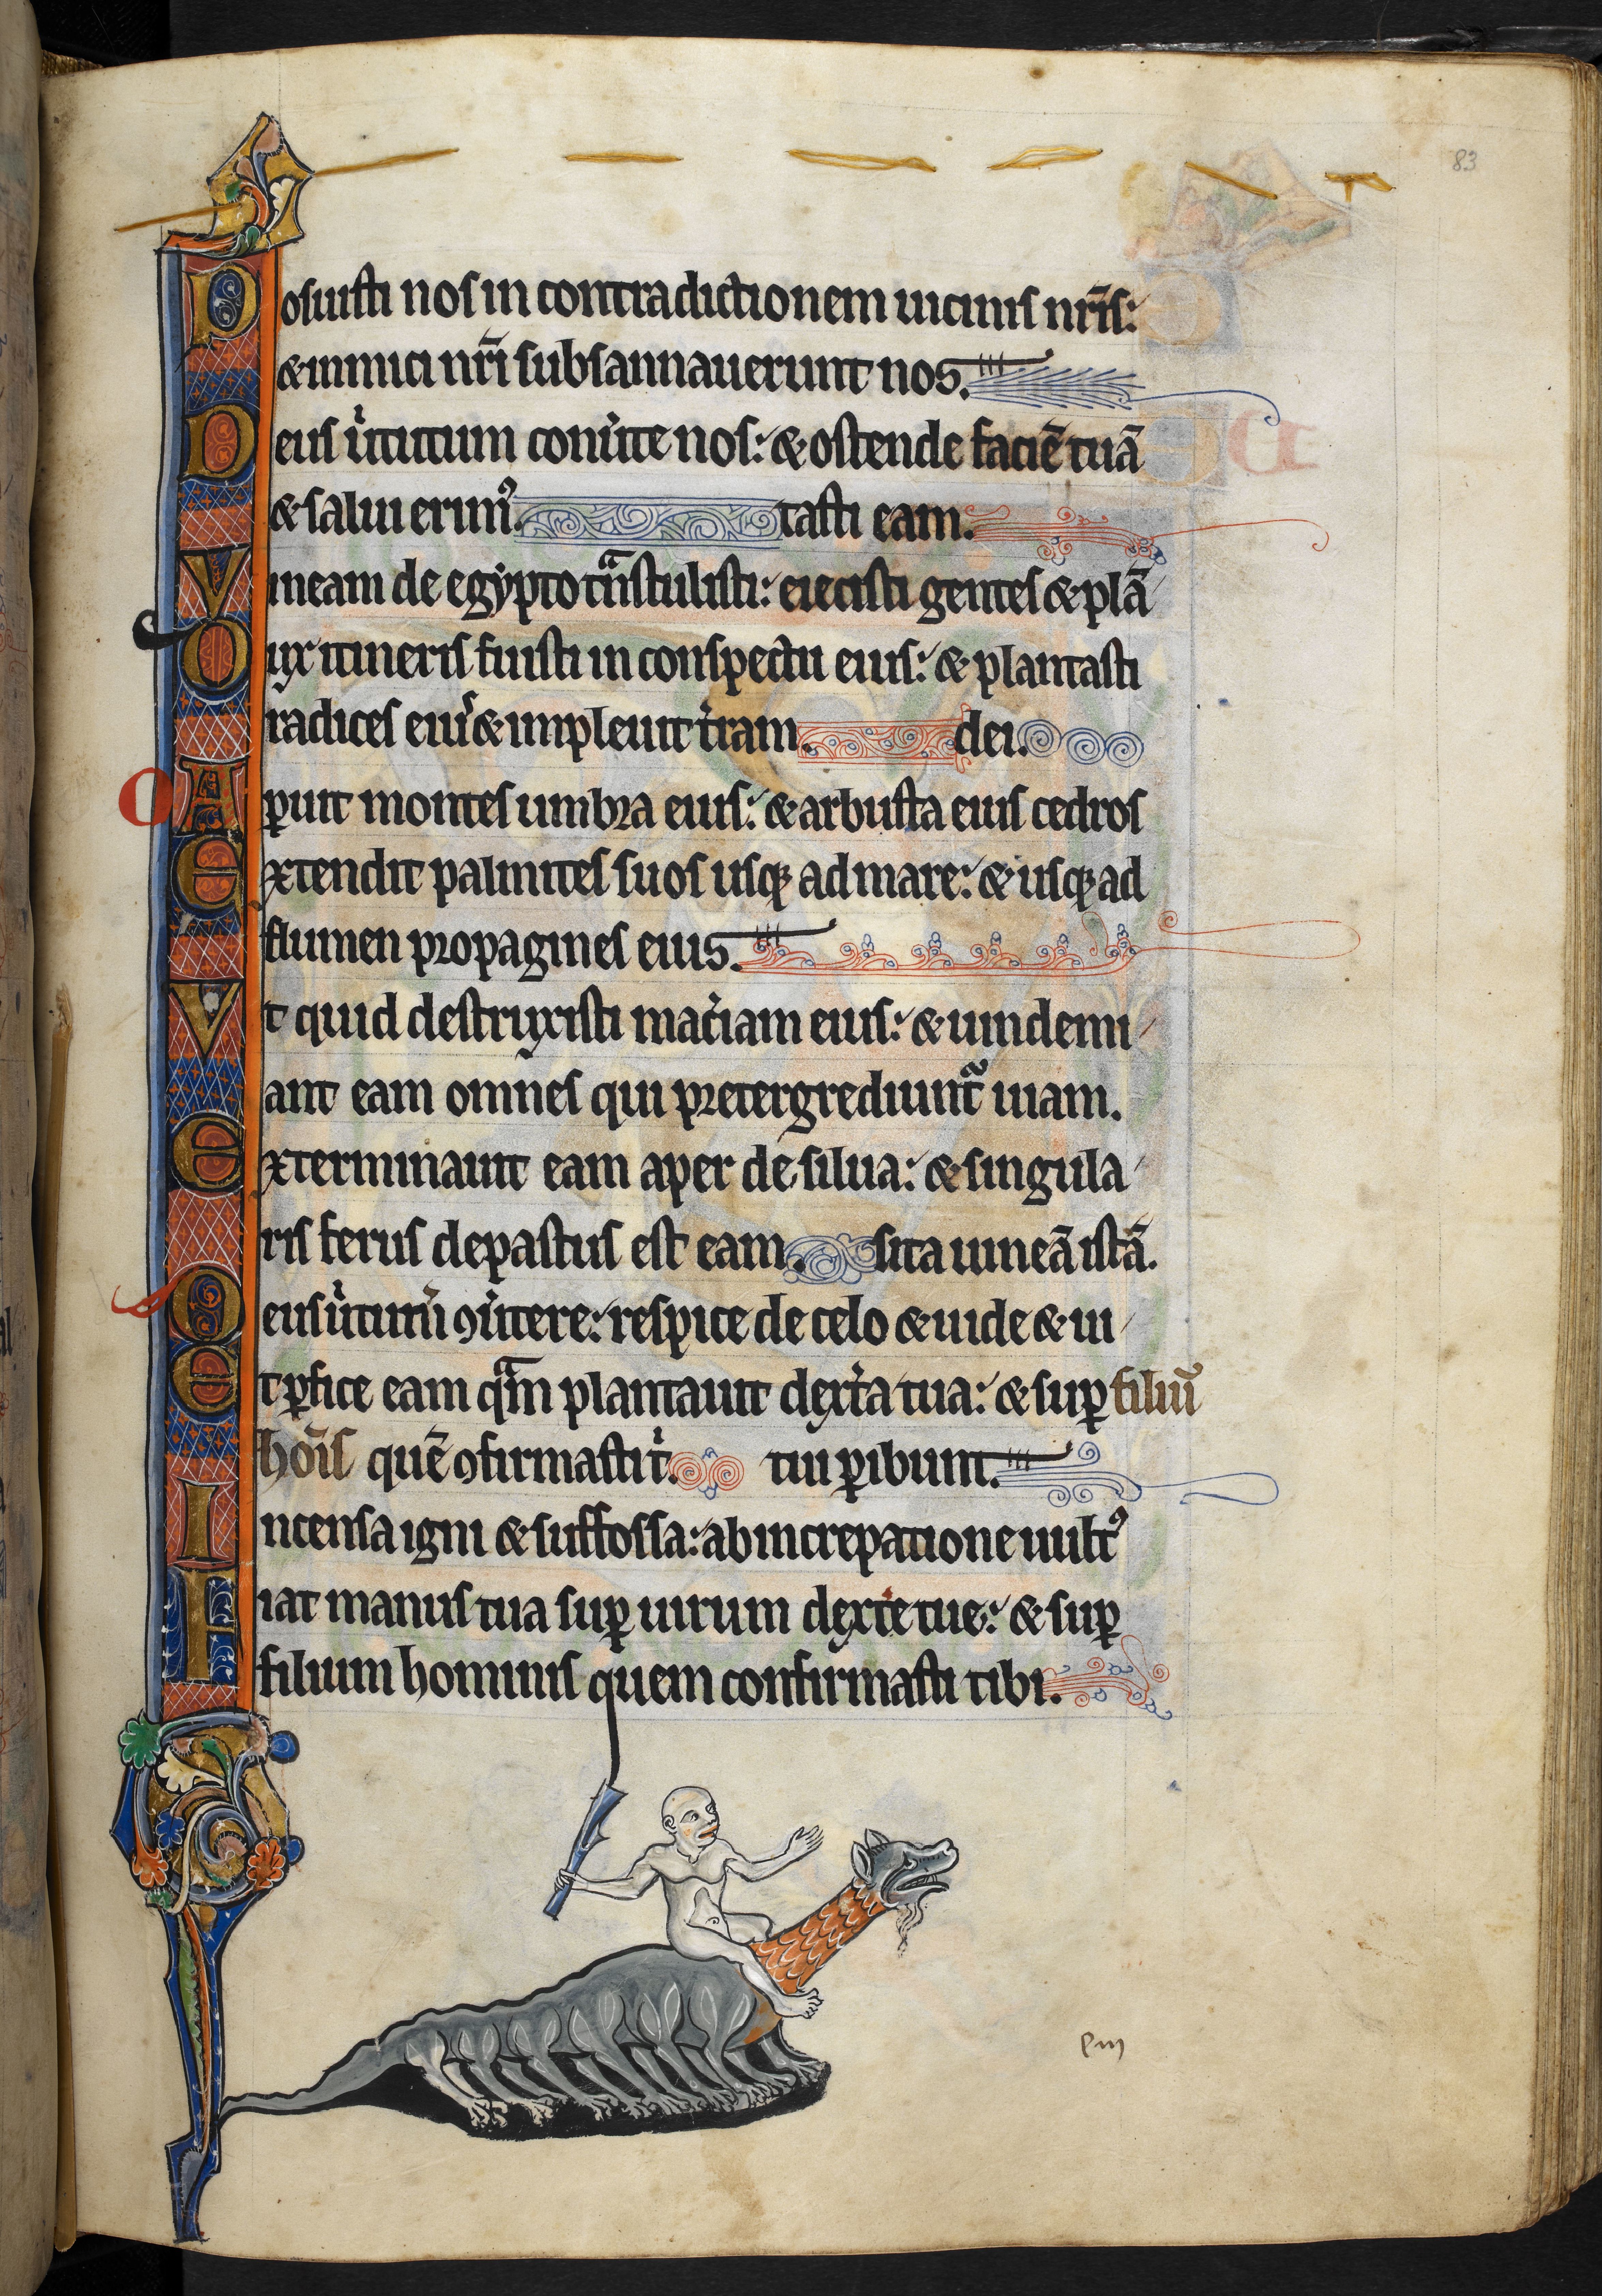 83
Posuisti nos in contradictionem uicinis nr̄is:
& inimici nr̄i subsannauerunt nos.
Deus uͥtutum conuͥte nos: & ostende faciē tuā
& salui erimꝰ. tasti eam.
Vineam de egypto tͣnstulisti: eiecisti gentes & plā
Dux itineris fuisti in conspectu eius: & plantasti
radices eiuˢ & impleuit tͥram. dei.
Oꝑuit montes umbra eius: & arbusta eius cedros
Extendit palmites suos usqꝫ ad mare: & usqꝫ ad
flumen propagines eius.
Vt quid destruxisti macͥiam eius: & uindemi
ant eam omnes qui pretergrediuntͣ uiam.
Exterminauit eam aper de silua: & singula
ris ferus depastus est eam. sita uineā istā.
Deus uͥtutū ꝯuͥtere: respice de celo & uide & ui
Et ꝑfice eam qͣm plantauit dextͥa tua: & suꝑ filiū
hoīs quē ꝯfirmasti tͥ. tui ꝑibunt.
Incensa igni & suffossa: ab increpatione uultꝰ
Fiat manus tua suꝑ uirum dexte tue: & suꝑ
filium hominis quem confirmasti tibi.